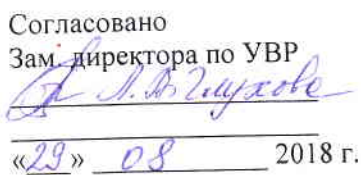 Согласовано
Зам. директора по УВР
Л. В. Глухова
«29» 08 2018 г.